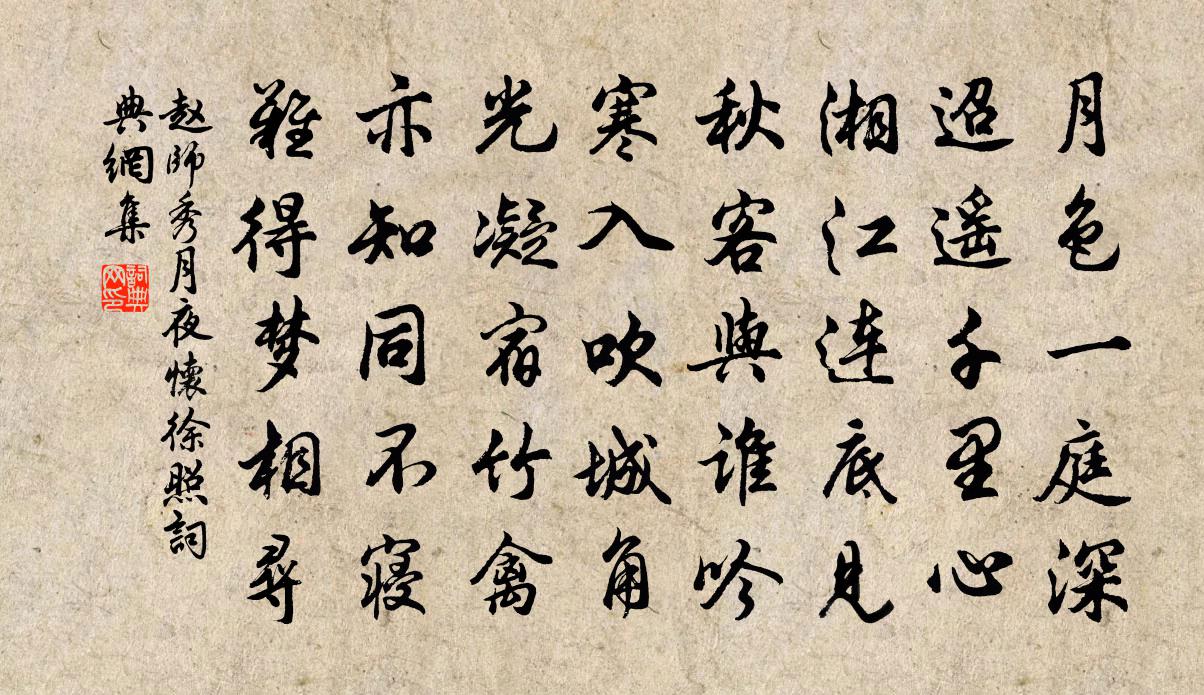 月色一庭深
迢遥千里心
湘江连底見
秋客與谁吟
寒入吹城角
光凝宿竹禽
亦知同不寝
難得梦相尋
赵師秀月夜懷徐照詞
典網集
詞典
网印